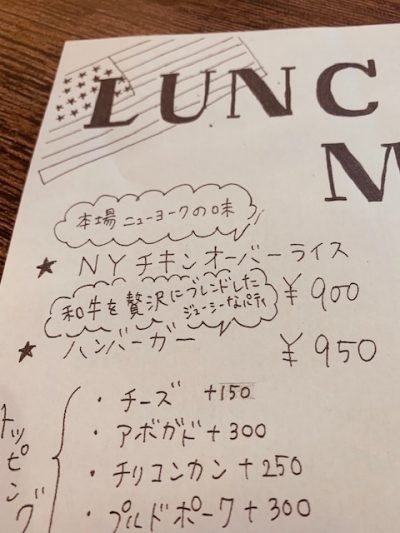 LUNC
M
本場ニューヨークの味
★ NYチキンオーバーライス
¥900
和牛を贅沢にブレンドした
ジューシーなパティ
★ ハンバーガー ¥950
トッピング
・チーズ +150
・アボガド+300
・チリコンカン+250
・プルドポーク+300